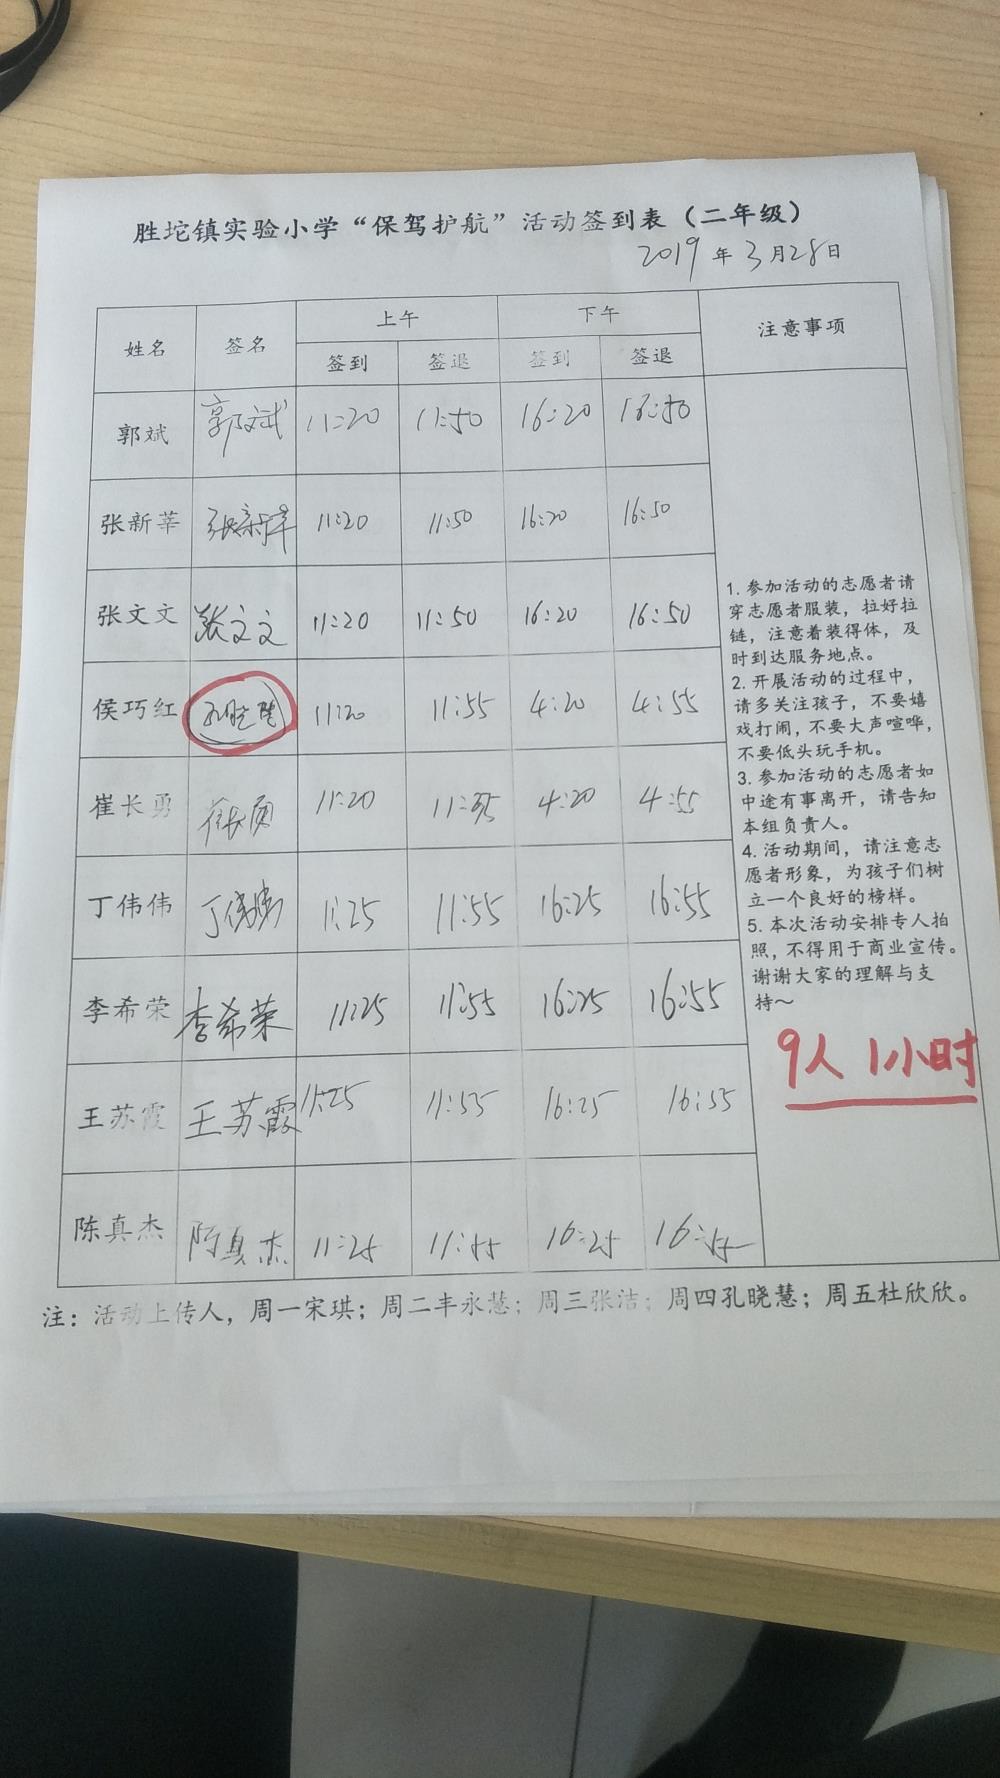 胜坨镇实验小学“保驾护航”活动签到表（二年级）
2019年3月28日
姓名 签名 上午 下午 注意事项
签到 签退 签到 签退
郭斌 郭斌 11:20 11:50 16:20 16:50
张新莘 张新莘 11:20 11:50 16:20 16:50
张文文 张文文 11:20 11:50 16:20 16:50
侯巧红 11:20 11:55 4:20 4:55
崔长勇 崔长勇 11:20 4:20 4:55
丁伟伟 丁伟伟 11:25 11:55 16:25 16:55
李希荣 李希荣 11:25 11:55 16:25 16:55
王苏霞 王苏霞 11:25 11:55 16:25 16:55
陈真杰 陈真杰 11:25 11:55 16:25 16:55
1. 参加活动的志愿者请
穿志愿者服装，拉好拉
链，注意着装得体，及
时到达服务地点。
2. 开展活动的过程中，
请多关注孩子，不要嬉
戏打闹，不要大声喧哗，
不要低头玩手机。
3. 参加活动的志愿者如
中途有事离开，请告知
本组负责人。
4. 活动期间，请注意志
愿者形象，为孩子们树
立一个良好的榜样。
5. 本次活动安排专人拍
照，不得用于商业宣传。
谢谢大家的理解与支
持～
9人 1小时
注：活动上传人，周一宋琪；周二丰永慧；周三张洁；周四孔晓慧；周五杜欣欣。